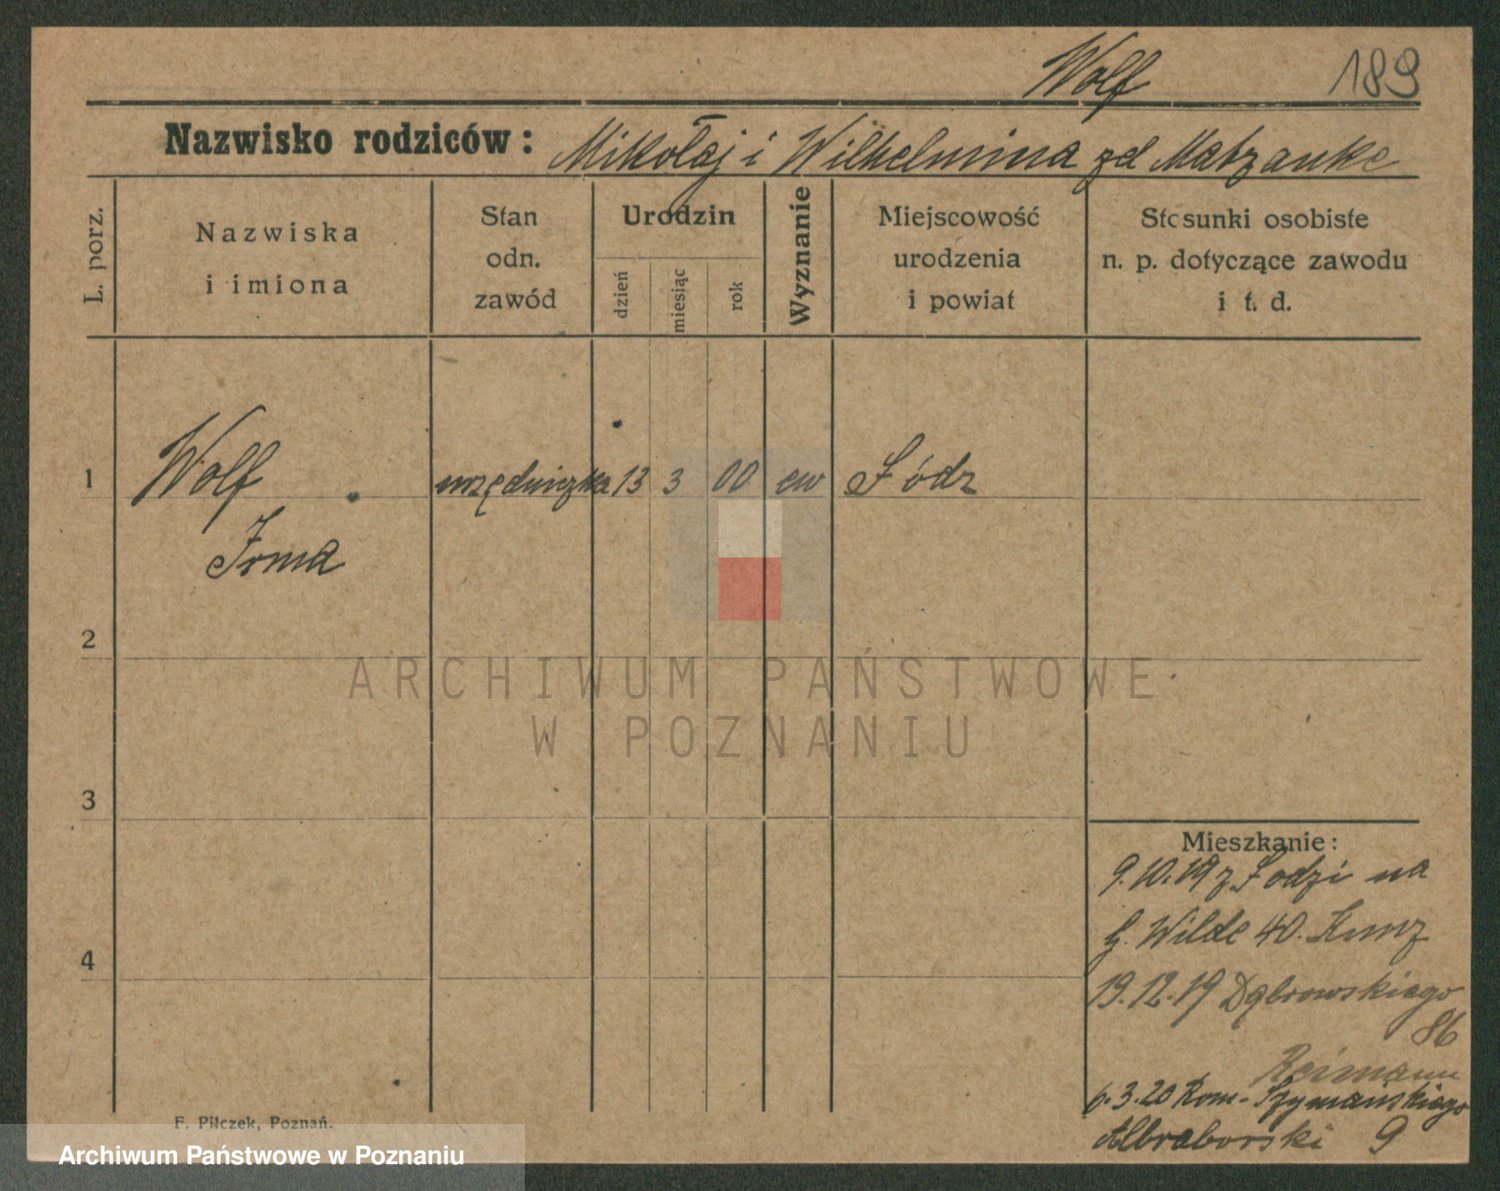 Wolf 189
Nazwisko rodziców: Mikołaj i Wilhelmina zd Matzanke
L. porz.
Nazwiska
i imiona
Stan
odn.
zawód
Urodzin
dzień
miesiąc
rok
Wyznanie
Miejscowość
urodzenia
i powiat
Stosunki osobiste
n. p. dotyczące zawodu
i t. d.
1 Wolf urzędniczka 13 3 00 ew Łódz
Irma
2
ARCHIWUM PAŃSTWOWE
W POZNANIU
3
Mieszkanie:
9.10.19 z Łodzi na
G. Wilde 40. Kunz
4
19.12.19 Dąbrowskiego
86
Reimann
6.3.20 Rom. Szymańskiego
9
F. Piłczek, Poznań.
Archiwum Państwowe w Poznaniu